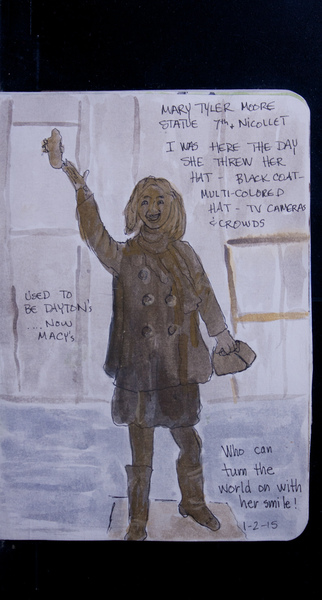 MARY TYLER MOORE
STATUE 7th & NICOLLET
I WAS HERE THE DAY
SHE THREW HER
HAT - BLACK COAT -
MULTI-COLORED
HAT - TV CAMERAS
& CROWDS
USED TO
BE DAYTON'S
....NOW
MACY'S.
Who can
turn the
world on with
her smile!
1-2-15